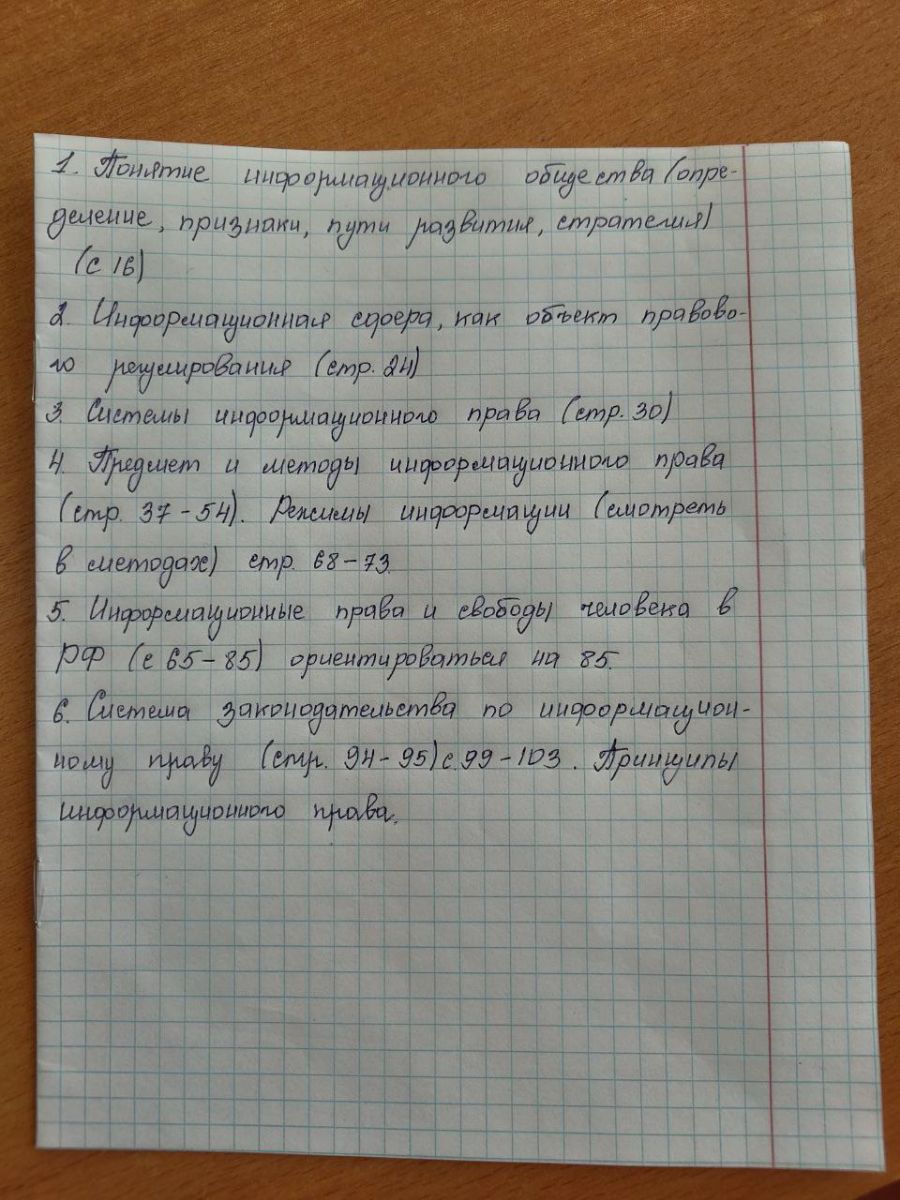 1. Понятие информационного общества (опре-
деление, признаки, пути развития, стратегия)
(с 16)
2. Информационная сфера, как объект правово-
го регулирования (стр. 24)
3. Системы информационного права (стр. 30)
4. Предмет и методы информационного права
(стр. 37-54). Режимы информации (смотреть
в методах) стр. 68-73.
5. Информационные права и свободы человека в
РФ (с 65-85) ориентироваться на 85.
6. Система законодательства по информацион-
ному праву (стр. 94-95) с 99-103. Принципы
информационного права.